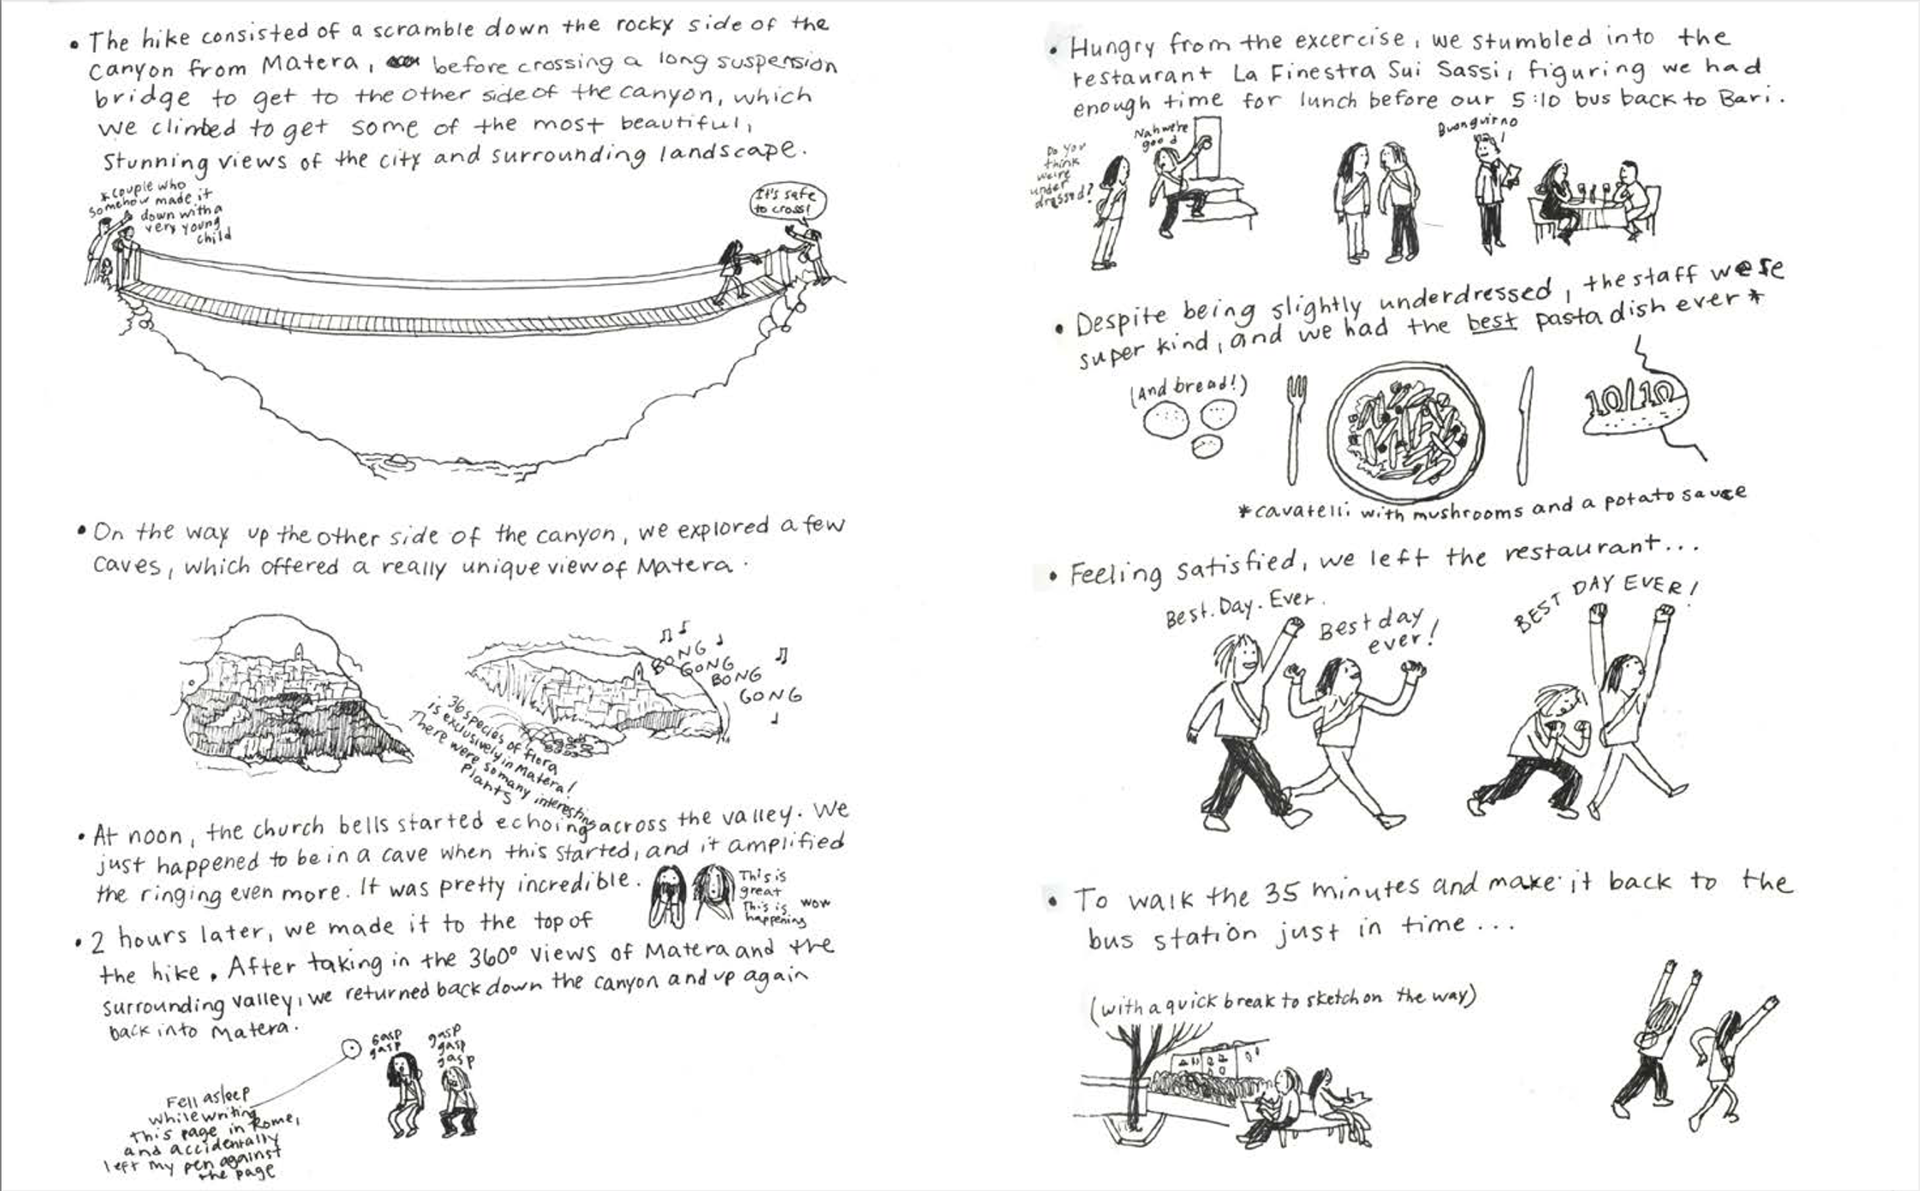 • The hike consisted of a scramble down the rocky side of the
canyon from Matera, before crossing a long suspension
bridge to get to the other side of the canyon, which
we climbed to get some of the most beautiful,
stunning views of the city and surrounding landscape.
*couple who
somehow made it
down with a
very young
child
It's safe
to cross!
• On the way up the other side of the canyon, we explored a few
caves, which offered a really unique view of Matera.
BONG
GONG
BONG
GONG
36 species of flora
is exclusively in Matera!
There were so many interesting
plants
• At noon, the church bells started echoing across the valley. We
just happened to be in a cave when this started, and it amplified
the ringing even more. It was pretty incredible.
This is
great
This is
happening
wow
• 2 hours later, we made it to the top of
the hike. After taking in the 360° views of Matera and the
surrounding valley, we returned back down the canyon and up again
back into Matera.
gasp
gasp
gasp
gasp
gasp
Fell asleep
while writing
this page in Rome,
and accidentally
left my pen against
the page
• Hungry from the excercise, we stumbled into the
restaurant La Finestra Sui Sassi, figuring we had
enough time for lunch before our 5:10 bus back to Bari.
Do you
think
we're
under
dressed?
Nah we're
good
Buonguirno
• Despite being slightly underdressed, the staff were
super kind, and we had the best pasta dish ever*
(And bread!)
10/10
*cavatelli with mushrooms and a potato sauce
• Feeling satisfied, we left the restaurant...
Best. Day. Ever.
Best day
ever!
BEST DAY EVER!
• To walk the 35 minutes and make it back to the
bus station just in time...
(with a quick break to sketch on the way)